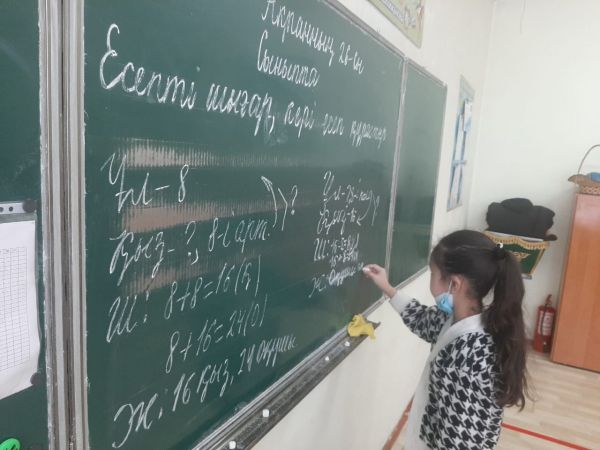 Ақпанның 26-сы
Сыныпта
Есепті шығар, кері есеп құрастыр
Ұл - 8
Қыз - ?, 8-і арт.
?
Ш: 8+8=16(қ)
8+16=24(о)
Ж: 16 қыз, 24 оқушы
Ұл -
Қыз -
?
Ш: 16-8
Ж: